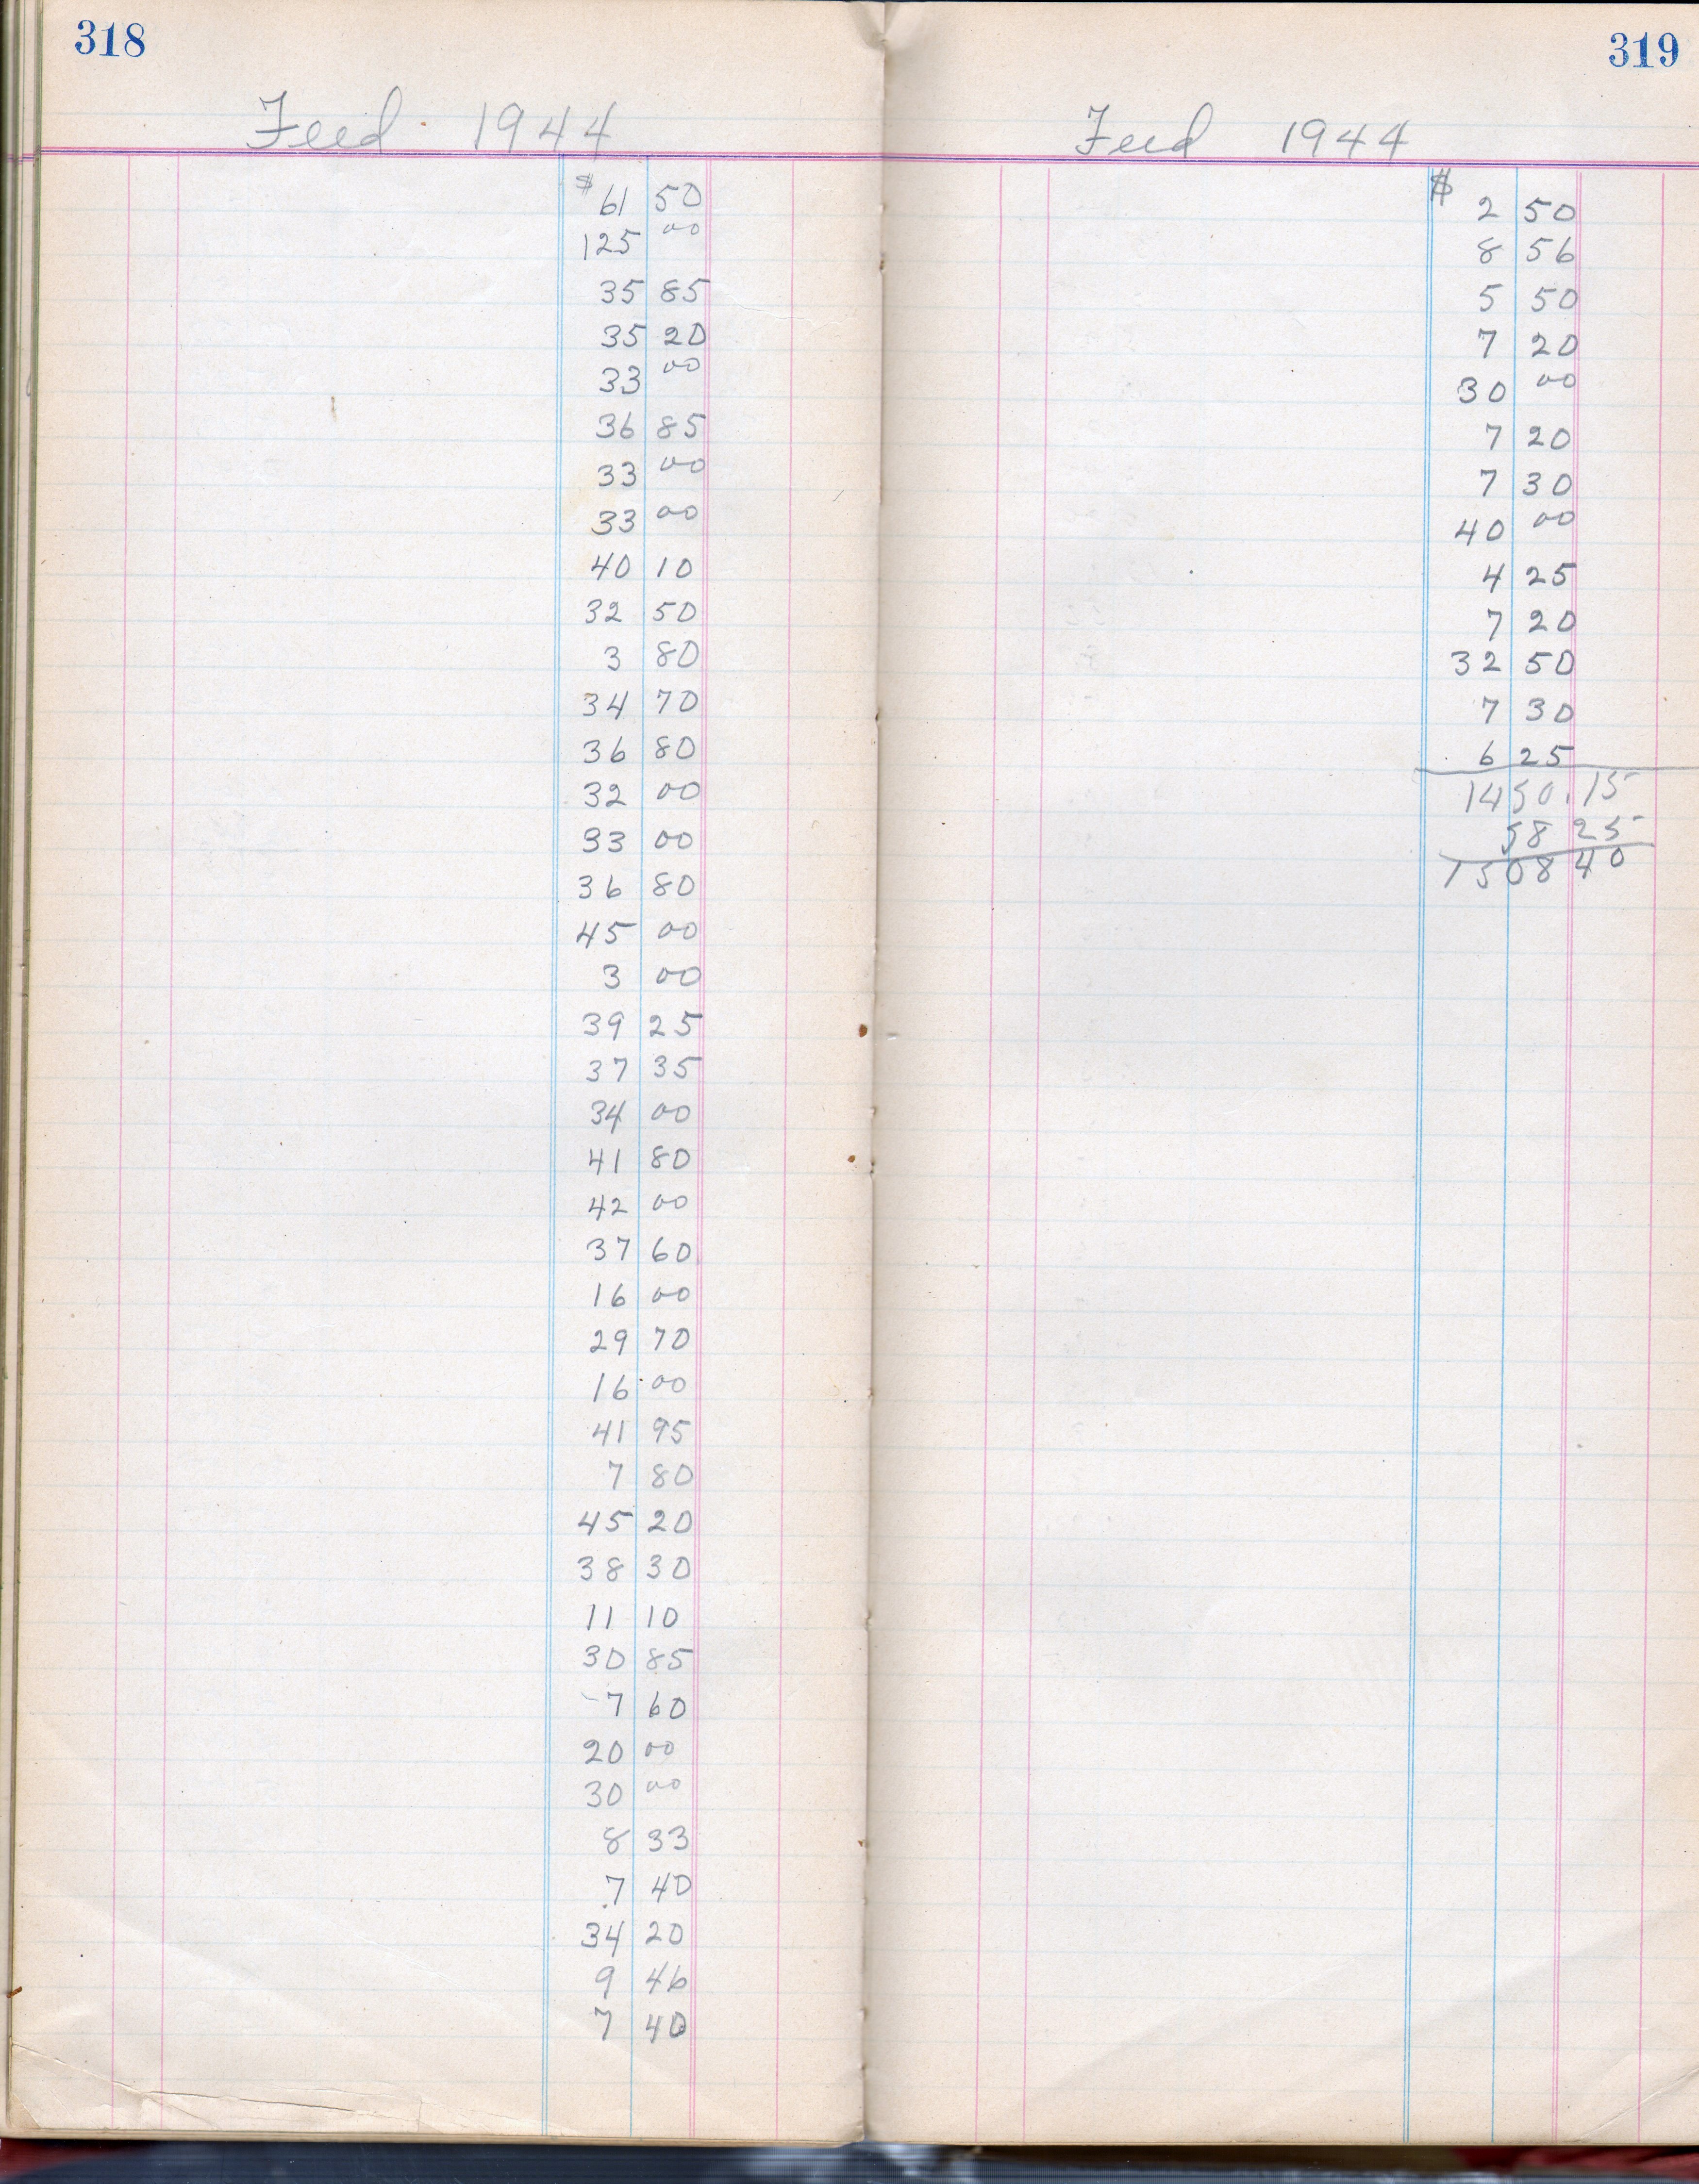 318
Feed 1944
$ 61 50
125 00
35 85
35 20
33 00
36 85
33 00
33 00
40 10
32 50
3 80
34 70
36 80
32 00
33 00
36 80
45 00
3 00
39 25
37 35
34 00
41 80
42 00
37 60
16 00
29 70
16 00
41 95
7 80
45 20
38 30
11 10
30 85
7 60
20 00
30 00
8 33
7 40
34 20
9 46
7 40
319
Feed 1944
$ 2 50
8 56
5 50
7 20
30 00
7 20
7 30
40 00
4 25
7 20
32 50
7 30
6 25
1450.15
58 25
1508 40